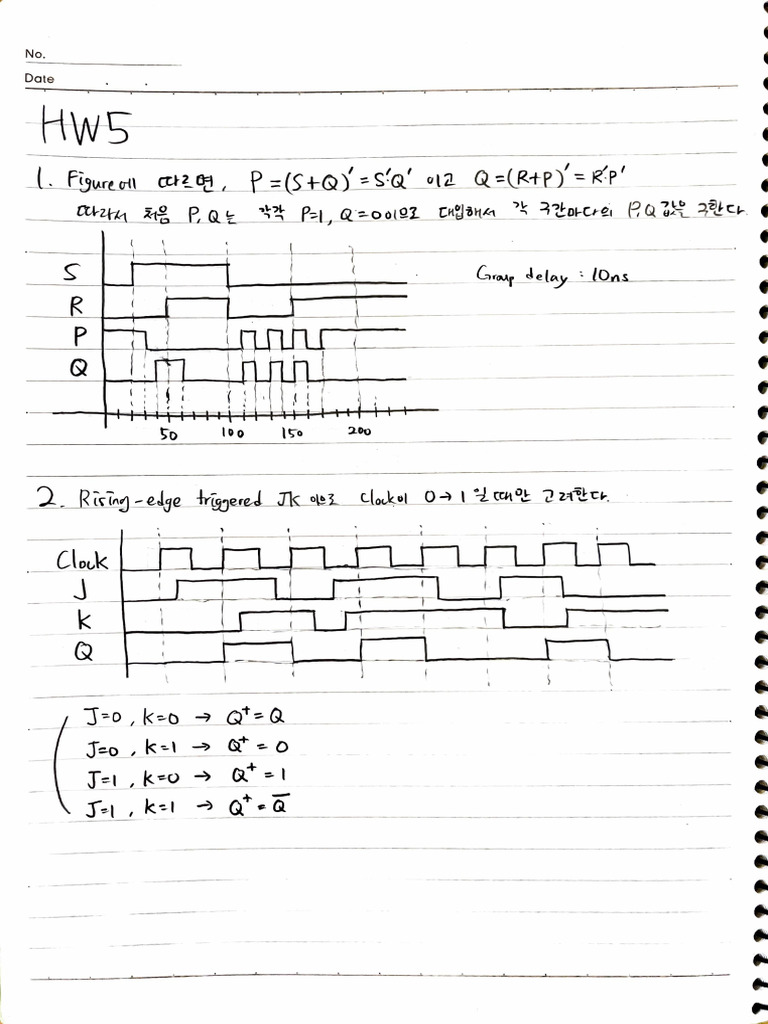 No.
Date . .
HW5
1. Figure에 따르면, P=(S+Q)'=S'Q' 이고 Q=(R+P)'=R'P'
따라서 처음 P,Q는 각각 P=1, Q=0이므로 대입해서 각 구간마다의 P,Q 값을 구한다.
S
Group delay : 10ns
R
P
Q
50 100 150 200
2. Rising-edge triggered JK 이므로 Clock이 0→1 일 때만 고려한다.
Clock
J
K
Q
J=0, K=0 → Q⁺=Q
J=0, K=1 → Q⁺=0
J=1, K=0 → Q⁺=1
J=1, K=1 → Q⁺=Q̅